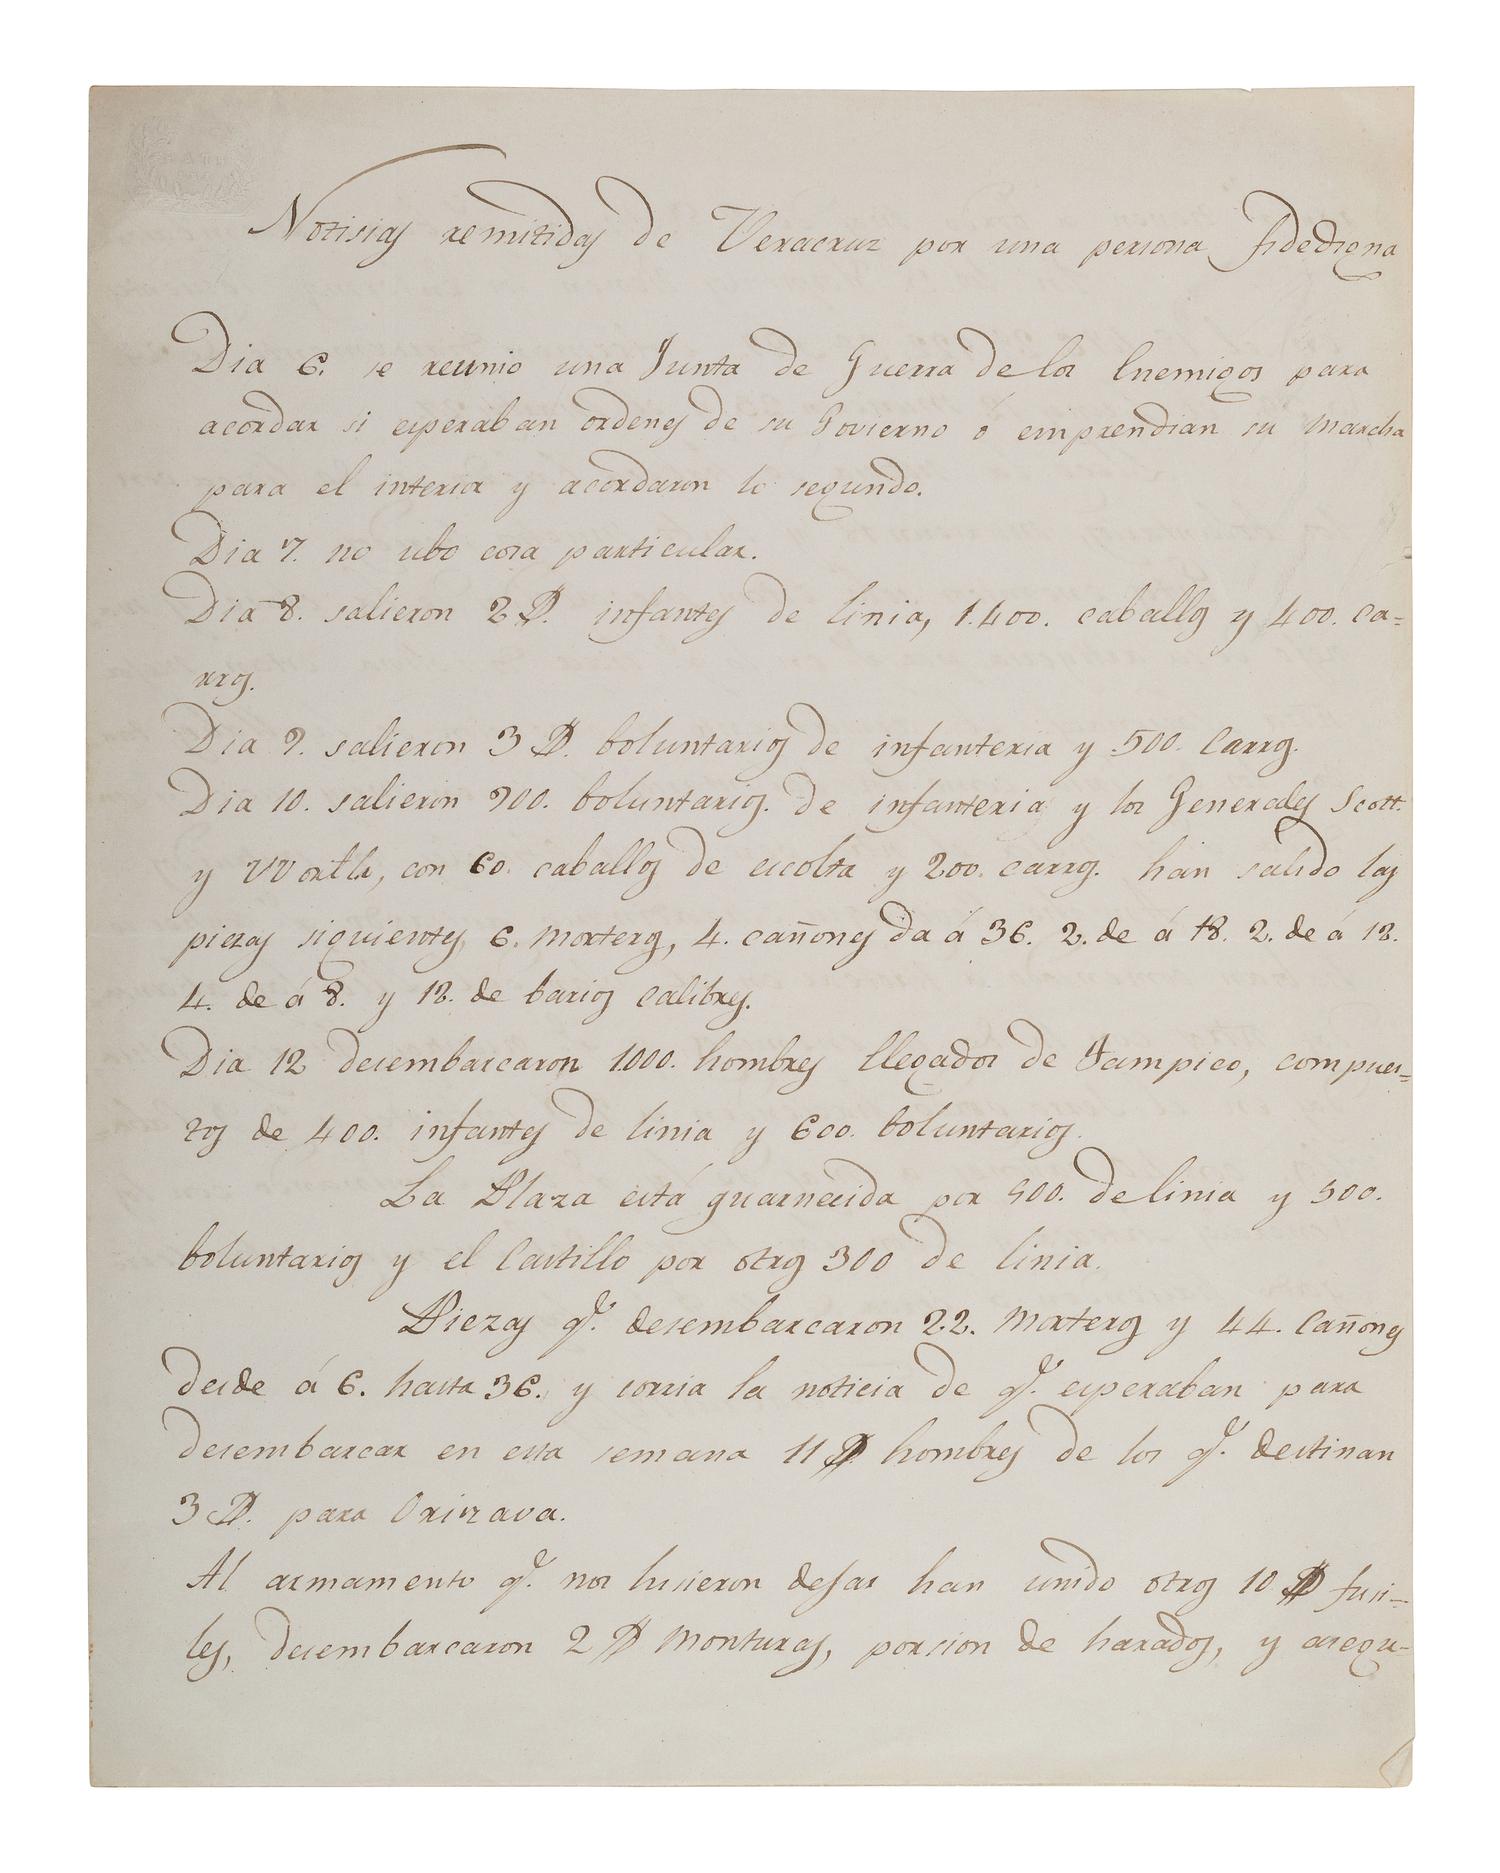 Notisias remitidas de Veracruz por una persona fidedigna
Dia 6. se reunio una Junta de Guerra de los Enemigos para
acordar si esperaban ordenes de su Govierno ó emprendian su marcha
para el interior y acordaron lo segundo.
Dia 7. no ubo cosa particular.
Dia 8. salieron 2 D. infantes de linia, 1.400. caballos y 400. ca=
rros.
Dia 9. salieron 3 D. boluntarios de infanteria y 500. Carros.
Dia 10. salieron 900. boluntarios. de infanteria y los Generales Scott.
y Worth, con 60. caballos de escolta y 200. carros. han salido las
piezas siguientes, 6. morteros, 4. cañones da á 36. 2. de á 18. 2. de á 12.
4. de á 8. y 12. de barios calibres.
Dia 12 desembarcaron 1000. hombres llegados de Tampico, compues=
tos de 400. infantes de linia y 600. boluntarios.
La Plaza está guarnecida por 500. de linia y 500.
boluntarios y el Castillo por otros 300 de linia.
Piezas q.e desembarcaron 22. morteros y 44. Cañones
desde á 6. hasta 36. y corria la noticia de q.e esperaban para
desembarcar en esta semana 11 D. hombres de los q.e destinan
3 D. para Orizava.
Al armamento q.e nos hisieron desar han unido otros 10 D fusi-
les, desembarcaron 2 D monturas, porsion de harados, y asegu-